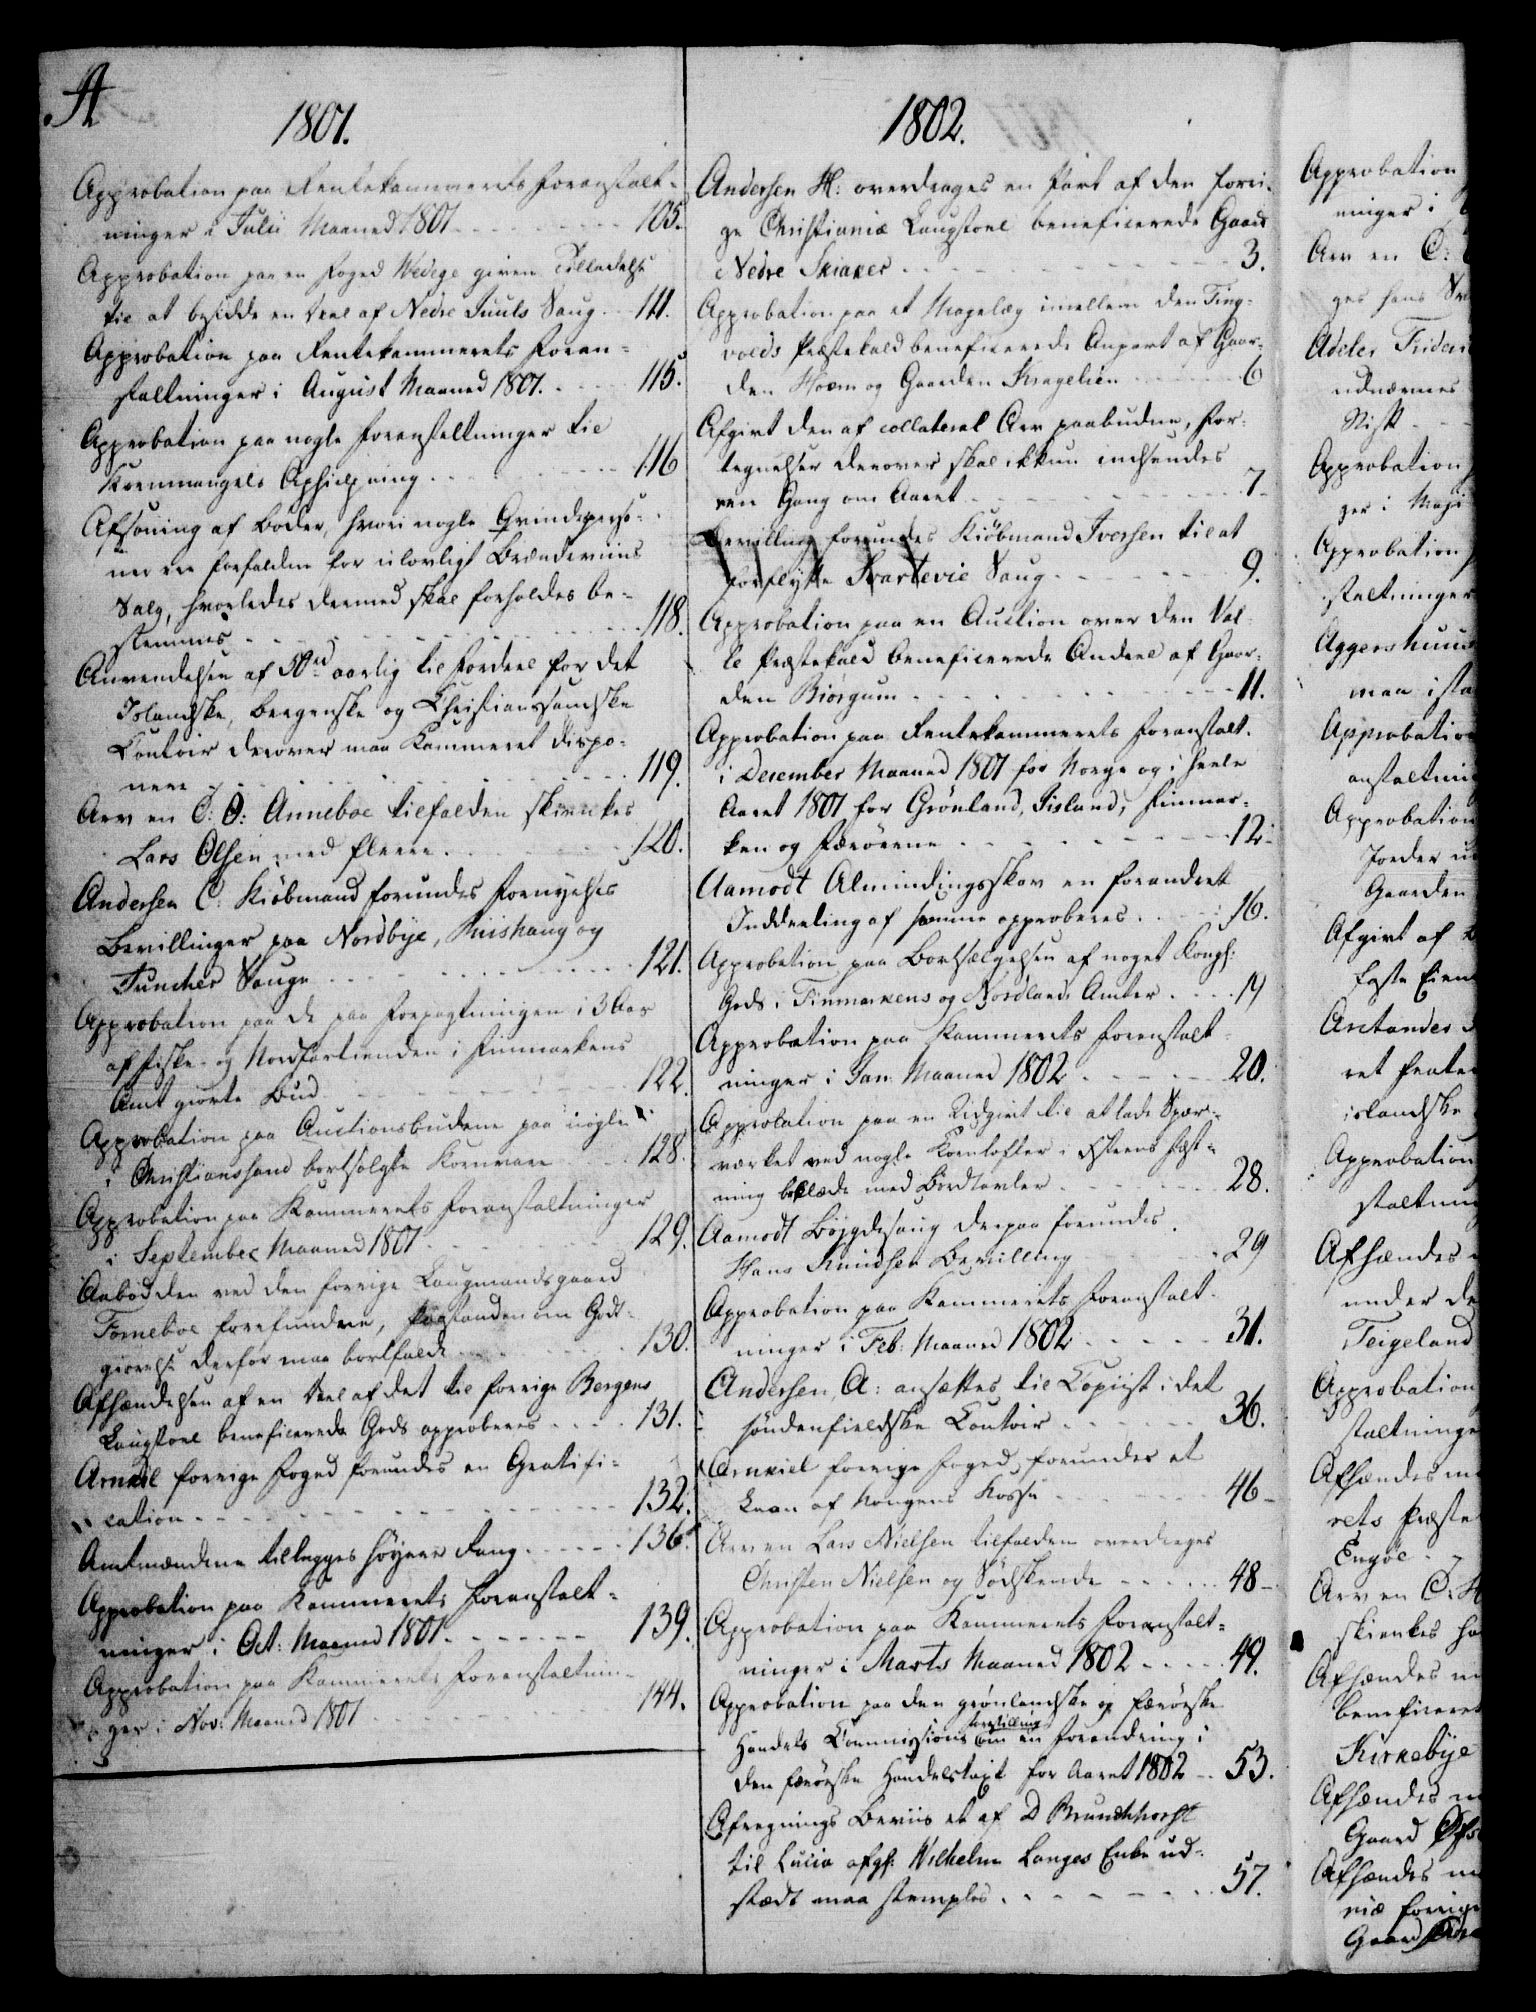 A
1801.
Approbation paa Rentekammerets Foranstalt-
ninger i Julii Maaned 1801 - - - 105.
Approbation paa en Foged Wedege given Tilladelse
til at besidde en Deel af Nedre Juuls Saug - 111.
Approbation paa Rentekammerets Foran-
staltninger i August Maaned 1801. - - - 115.
Approbation paa nogle Foranstaltninger til
Kornmangels Afhielpning - - - 116
Afsoning af Bøder, hvori nogle
ner ere forfaldne for ulovligt Brændeviins
Salg, hvorledes dermed skal forholdes be-
stemmes - - - 118.
Anvendelsen af 50 rd aarlig til Fordeel for det
Islandske, Bergenske og Christiansandske
Contoir derover maa Kammeret dispo-
nere - - - 119.
Arv en C: O: Anneboe tilfalden skienkes
Lars Olsen med flere - - - 120.
Andersen C: Kiøbmand forundes Fornyelses
Bevillinger paa Nordbye, Riishaug og
Funcher Sauge - - - 121.
Approbation paa de paa Forpagtningen i 3 Aar
af Fiske- og Nordfartienden i Finmarkens
Amt giorte Bud - - - 122.
Approbation paa Auctionsbudene paa nogle
i Christianssand bortsolgte Kornvare - - 128.
Approbation paa Kammerets Foranstaltninger
i September Maaned 1801 - - - 129.
Aabodden ved den forrige Laugmandsgaard
Forneboe forefundne, Paastanden om Godt-
giørelse derfor maa bortfalde - - - 130.
Afhændelsen af en Deel af det til forrige Bergens
Laugstoel beneficerede Gods approberes - - - 131.
Arnkiel forrige Foged forundes en Gratifi-
cation - - - 132.
Amtmændene tillegges høyere Rang - - - 136.
Approbation paa Kammerets Foranstalt-
ninger i Oct: Maaned 1801 - - - 139.
Approbation paa Kammerets Foranstaltnin-
ger i Nov: Maaned 1801 - - - 144.
1802.
Andersen H: overdrages en Part af den forri-
ge Christianiæ Laugstoel beneficerede Gaard
Nedre Skianer - - - 3.
Approbation paa et Magelæg imellem den Ting-
volds Præstekald beneficerede Anpart af Gaar-
den Hoem og Gaarden Kragelien - - - 6
Afgivt den af collateral Arv paabudne, For-
tegnelser derover skal ikkun indsendes
een Gang om Aaret - - - 7-
Bevilling forundes Kiøbmand Iversen til at
forflytte Svartevie Saug - - - 9.
Approbation paa en Auction over den Val-
le Præstekald beneficerede Andeel af Gaar-
den Biørgum - - - 11.
Approbation paa Rentekammerets Foranstalt.
i December Maaned 1801 for Norge og i heele
Aaret 1801 for Grønland, Iisland, Finmar-
ken og Færøerne - - - 12-
Aamodt Almindingsskov en forandret
Inddeeling af samme approberes - - - 16.
Approbation paa Bortsælgelsen af noget Kongl:
Gods i Finmarkens og Nordlands Amter - - - 17
Approbation paa Kammerets Foranstalt-
ninger i Jan: Maaned 1802 - - - 20.
Approbation paa en Udgivt til at lade Spær-
værket ved nogle Kornlofter i Østeens Fæst-
ning beklæde med Bordtavler - - - 28.
Aamodt Bøygdesaug derpaa forundes
Hans Knudsen Bevilling - - - 29
Approbation paa Kammerets Foranstalt-
ninger i Feb: Maaned 1802 - - - 31.
Andersen, A: ansættes til Copiist i det
søndenfieldske Contoir - - - 36.
Arnkiel forrige Foged, forundes et
Laan af Kongens Kasse - - - 46-
Arv en Lars Nielsen tilfalden overdrages
Christen Nielsen og Sødskende - - - 48-
Approbation paa Kammerets Foranstalt-
ninger i Marts Maaned 1802 - - - 49.
Approbation paa den grønlandske og færøeske
Handels Commissions Forestilling om en Forandring i
den færøeske Handelstaxt for Aaret 1802 - - 53.
Afregnings Beviis et af D Brunchhorst
til Lucia afgl: Wilhelm Langes Enke ud-
stædt maa stemples - - - 57.
Approbation
ninger i
Arv en C:
ges hans
Adeler Frideri
udnævnes
Approbation
ger i Maji
Approbation
staltninger
Aggershuus
maa ista
Approbation
anstaltnin
Approbation
Jorder
Gaarden
Afgivt af
faste Eien
Antandes
ret
islandske
Approbation
staltning
Afhændes
under de
Teigeland
Approbation
staltninge
Afhændes
rets Præste
Engøe -
Arv en C: H
skienkes ha
Afhændes
beneficeret
Kirkebye
Afhændes
Gaard
Afhændes
niæ forrige
Gaard